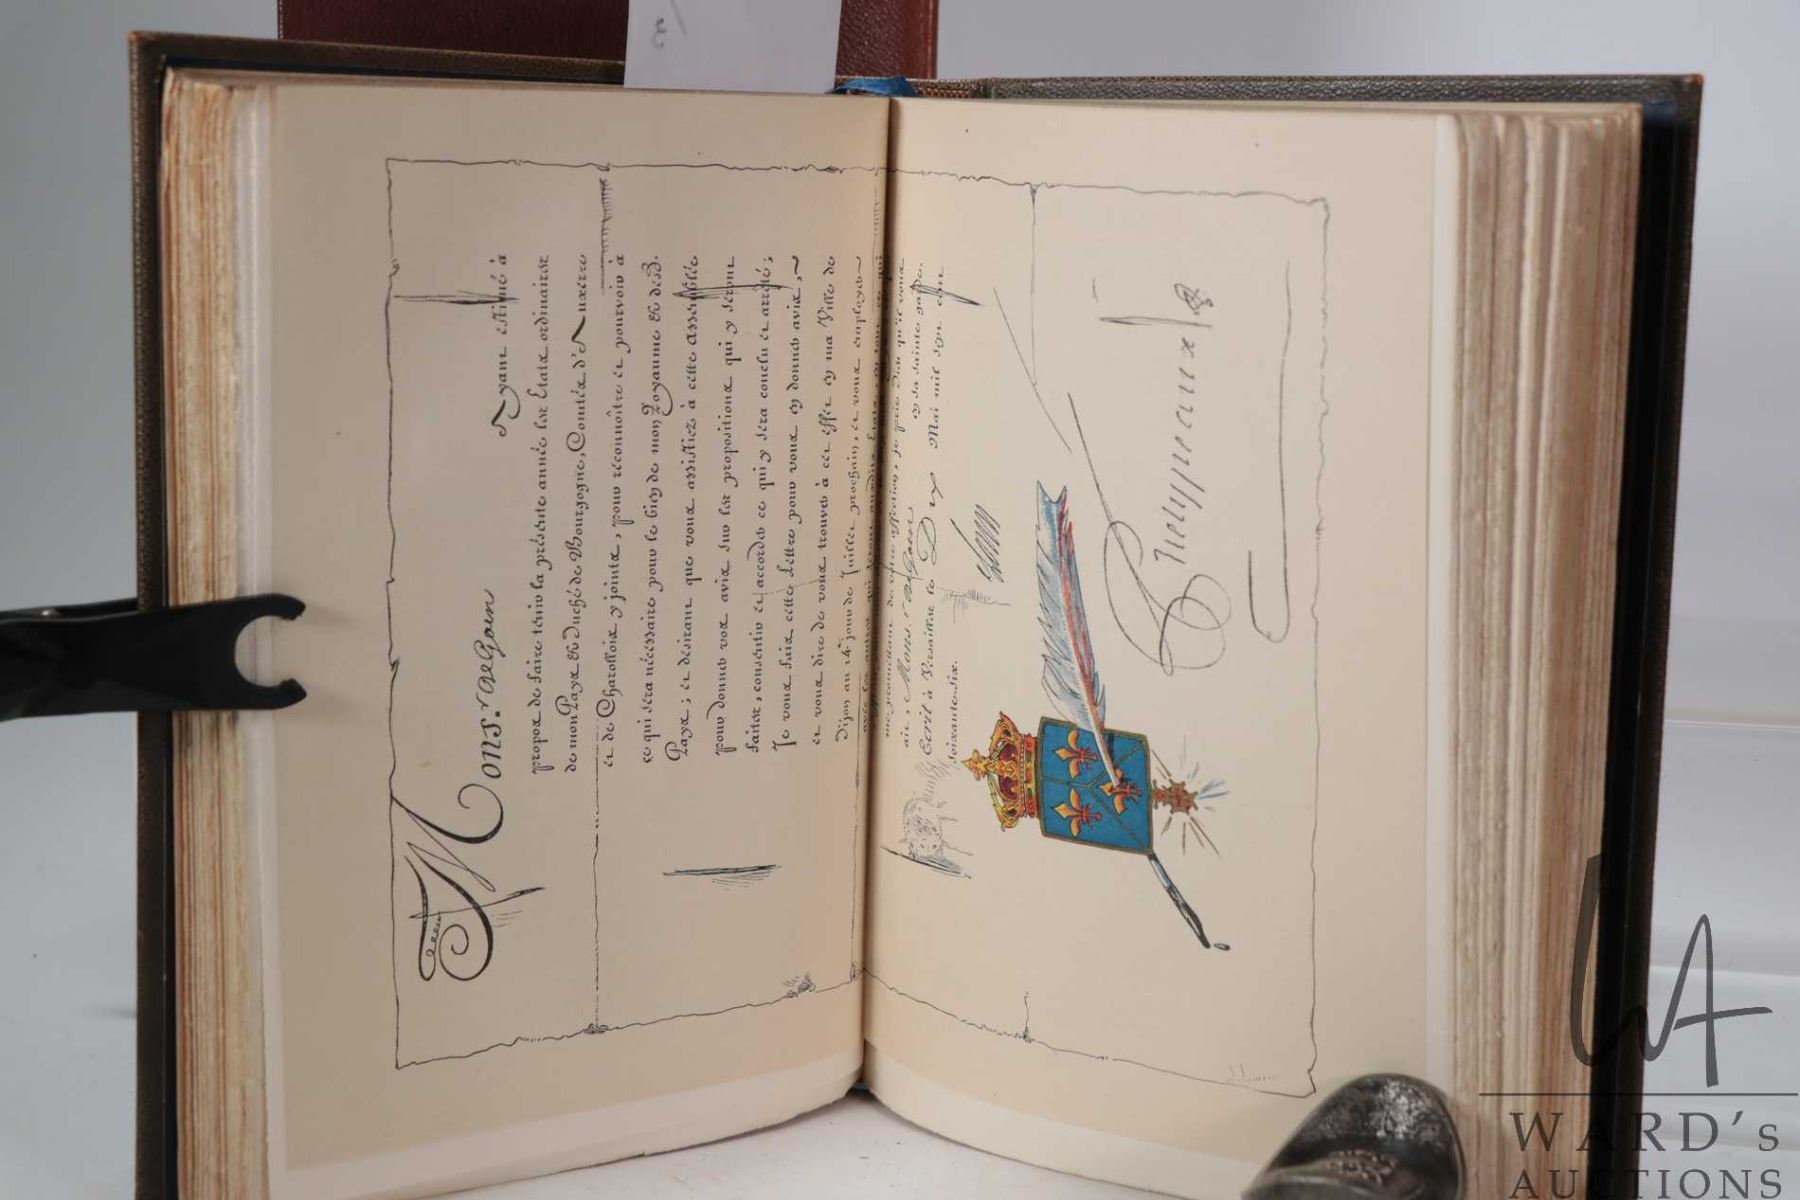 Mons.r de Gain
Ayant estimé à
propos de faire tenir la présente année les Etats ordinaires
de mon Pays & Duché de Bourgogne, Comtés d'Auxerre
et de Charollois y joints, pour réconnoître et pourvoir à
ce qui sera nécessaire pour le bien de mon Royaume & desd.
Pays; et désirant que vous assistiez à cette assemblée
pour donner vos avis sur les propositions qui y seront
faites, consentir et accorder ce qui y sera conclu et arrêté;
Je vous fais cette lettre pour vous en donner avis,
et vous dire de vous trouver à cet effet en ma Ville de
Dijon au 14e jour de Juillet prochain, et vous employer
avec les autres qui seront auxdits Etats,
me promettant de votre affection, je prie Dieu qu'il vous
ait, Mons.r de Gain en sa sainte garde.
Ecrit à Versailles le Dix Mai mil sept cent
soixante-six.
Louis
Phelypeaux
WARD's
AUCTIONS